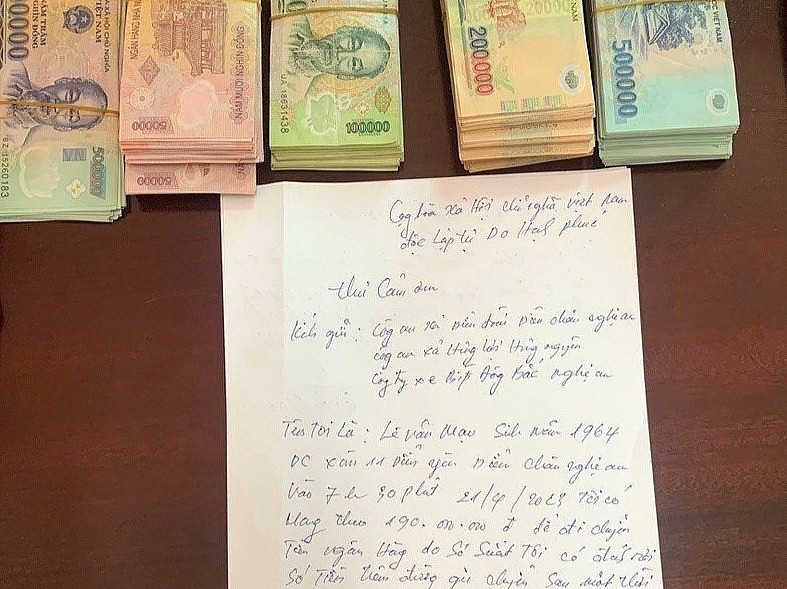 NGÂN HÀNG NHÀ N
NĂM MƯƠI NGHÌN ĐỒNG
VIỆT NAM
NĂM TRĂM
NGHÌN ĐỒNG
500000
BZ 15260183
50000
50000
UA 18631438
100000
200000
20000
NAM
500000
VIỆT NAM
Cộng hòa xã Hội chủ nghĩa việt Nam
độc lập tự Do Hạnh phúc
thư Cảm ơn
Kính gửi : công an xã Diễn đoài Diễn châu nghệ an
công an xã Hưng lợi Hưng nguyên
công ty xe Bus Đông Bắc Nghệ an
Tên Tôi Là : Lê văn Mạo Sinh năm 1964
DC xóm 11 Diễn yên Diễn châu nghệ an
vào 7 h 30 phút 21/4/2023 Tôi có
Mang theo 190.000.00 đ để đi chuyển
Tiền ngân Hàng do Sơ Suất Tôi có đánh rơi
Số Tiền trên